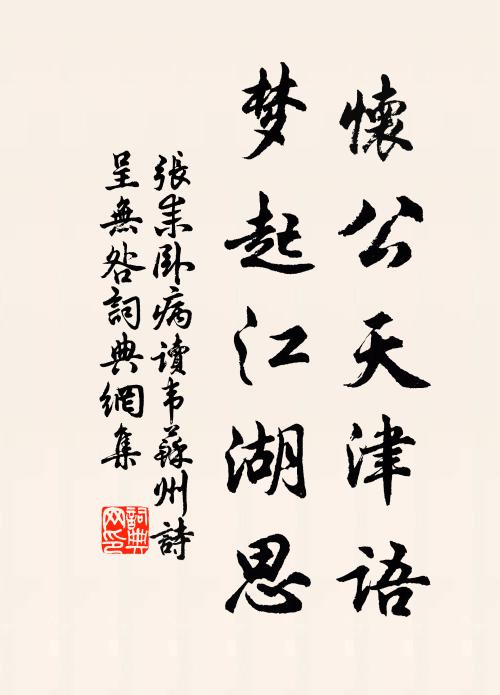 懷公天津语
梦起江湖思
張耒卧病讀韦蘇州詩
呈無咎詞典網集
詞典
网印